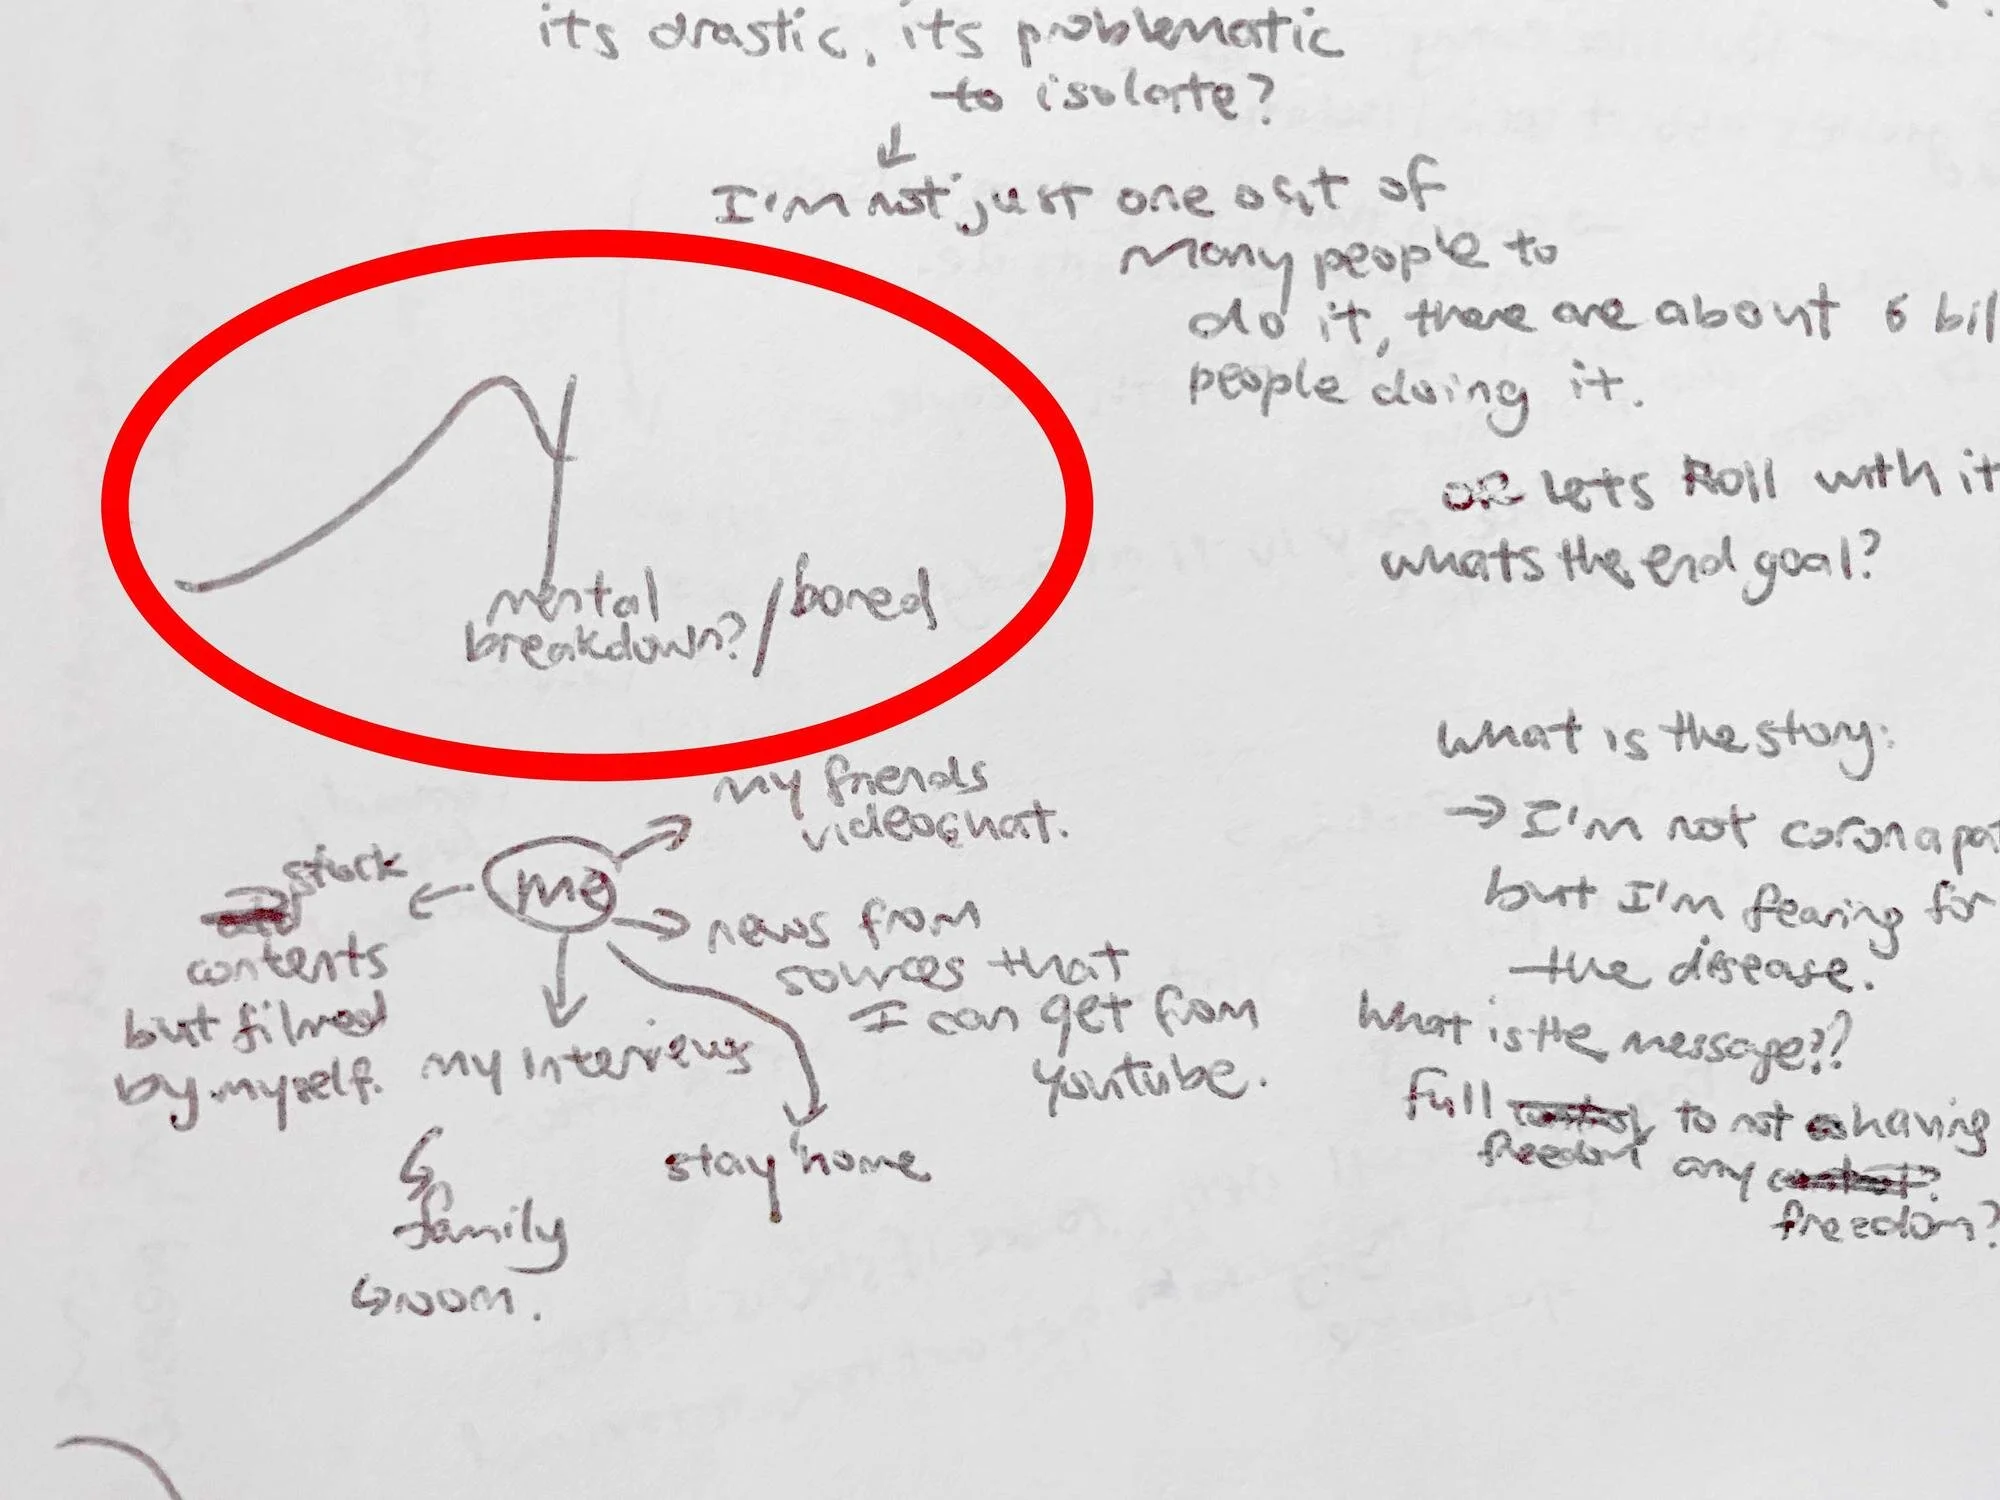 its drastic, its problematic
to isolate?
I'm not just one out of
many people to
do it, there are about 6 bil
people doing it.
or lets Roll with it
whats the end goal?
mental
breakdown? / bored
what is the story:
→ I'm not corona pat
but I'm fearing for
the disease.
what is the message??
full to not having
freedom any
freedom?
my friends
videochat.
me
stock
contents
but filmed
by myself.
news from
sources that
I can get from
youtube.
my interviews
stay home
family
room.